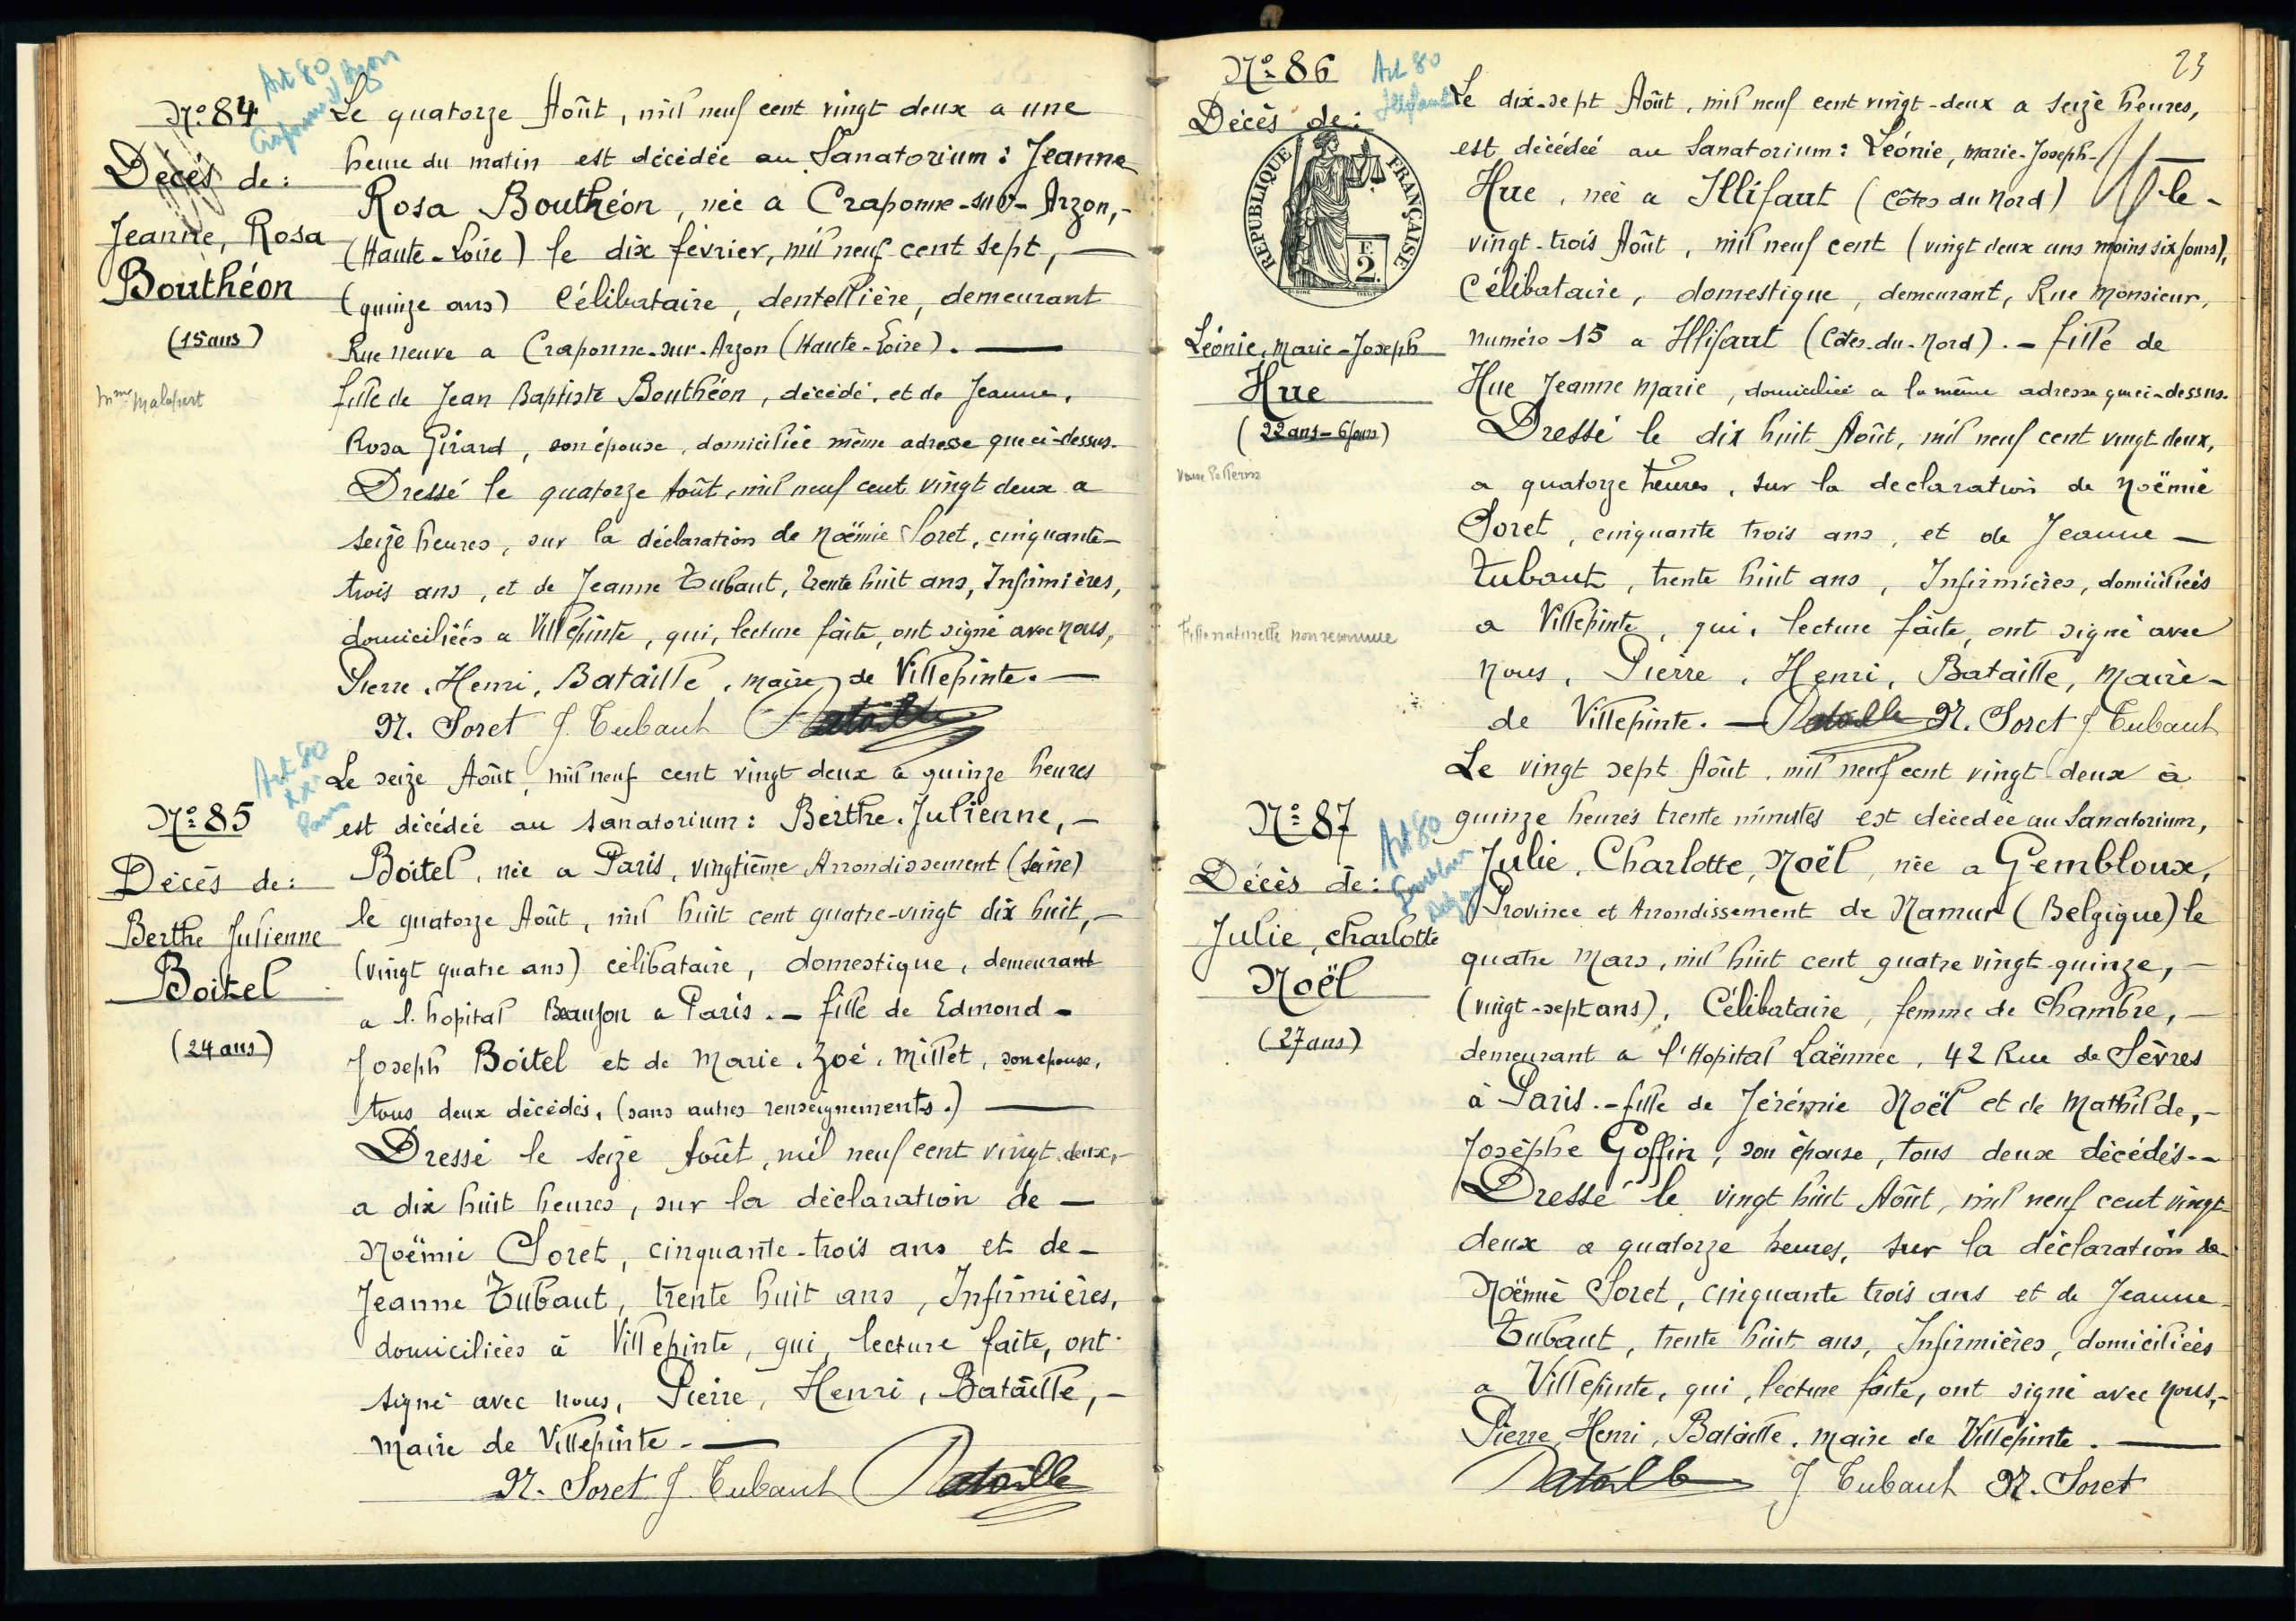 Nº 84
Art 80
Craponne s/ Arzon
Décès de:
Jeanne, Rosa
Bouthéon
(15 ans)
Mme Malapert
Le quatorze Août, mil neuf cent vingt deux a une
heure du matin est décédée au Sanatorium: Jeanne
Rosa Bouthéon, née a Craponne-sur-Arzon,-
(Haute-Loire) le dix février, mil neuf cent sept, —
(quinze ans) Célibataire, dentellière, demeurant
Rue neuve a Craponne-sur-Arzon (Haute-Loire). —
fille de Jean Baptiste Bouthéon, décédé, et de Jeanne,
Rosa Girard, son épouse, domiciliée même adresse que ci-dessus.
Dressé le quatorze Août, mil neuf cent vingt deux a
seize heures, sur la déclaration de Noëmie Soret, cinquante-
trois ans, et de Jeanne Tubaut, trente huit ans, Infirmières,
domiciliées a Villepinte, qui, lecture faite, ont signé avec nous,
Pierre, Henri, Bataille, maire de Villepinte. —
N. Soret J. Tubaut Bataille
Nº 85
Art 80
XXe
Paris
Décès de:
Berthe Julienne
Boitel
(24 ans)
Le seize Août, mil neuf cent vingt deux a quinze heures
est décédée au sanatorium: Berthe. Julienne, -
Boitel, née a Paris, vingtième Arrondissement (Seine)
le quatorze Août, mil huit cent quatre-vingt dix huit, -
(vingt quatre ans) célibataire, domestique, demeurant
a l. hopital Beaujon a Paris. - fille de Edmond -
Joseph Boitel et de Marie. Zoé. Millet, son epouse,
tous deux décédés, (sans autres renseignements.) —
Dressé le seize Août, mil neuf cent vingt deux, -
a dix huit heures, sur la déclaration de —
Noëmie Soret, cinquante-trois ans et de -
Jeanne Tubaut, trente huit ans, Infirmières,
domiciliées à Villepinte, qui, lecture faite, ont
signé avec nous, Pierre, Henri, Bataille, -
Maire de Villepinte - —
N. Soret J. Tubaut Bataille
23
Nº 86
Art 80
Illifaut
Décès de:
RÉPUBLIQUE FRANÇAISE
F
2
Léonie, Marie-Joseph
Hue
(22 ans - 6 jours)
Fille naturelle non reconnue
Le dix-sept Août, mil neuf cent vingt-deux a seize heures,
est décédée au Sanatorium: Léonie, Marie-Joseph- —
Hue, née a Illifaut (Côtes du Nord) le -
vingt-trois Août, mil neuf cent (vingt deux ans moins six jours),
Célibataire, domestique, demeurant, Rue Monsieur,
numéro 15 a Illifaut (Côtes-du-Nord). - fille de
Hue Jeanne Marie, domiciliée a la même adresse que ci-dessus.
Dressé le dix huit Août, mil neuf cent vingt deux,
a quatorze heures, sur la declaration de Noëmie
Soret, cinquante trois ans, et de Jeanne —
Tubaut, trente huit ans, Infirmières, domiciliées
a Villepinte, qui, lecture faite, ont signé avec
nous, Pierre, Henri, Bataille, Maire -
de Villepinte. — Bataille N. Soret J. Tubaut
Nº 87
Art 80
Gembloux
Décès de:
Julie, Charlotte
Noël
(27 ans)
Le vingt sept Août, mil neuf cent vingt deux à
quinze heures trente minutes est décédée au Sanatorium,
Julie, Charlotte, Noël, née a Gembloux,
Province et Arrondissement de Namur (Belgique) le
quatre Mars, mil huit cent quatre vingt quinze, -
(vingt-sept ans), Célibataire, femme de Chambre, -
demeurant a l'Hopital Laënnec, 42 Rue de Sèvres
à Paris. - fille de Jérémie Noël et de Mathilde, -
Josèphe Goffin, son épouse, tous deux décédés. -
Dressé le vingt huit Août, mil neuf cent vingt-
deux a quatorze heures, sur la déclaration de-
Noëmie Soret, cinquante trois ans et de Jeanne
Tubaut, trente huit ans, Infirmières, domiciliées
a Villepinte, qui, lecture faite, ont signé avec nous, -
Pierre, Henri, Bataille, maire de Villepinte. —
Bataille J Tubaut N. Soret